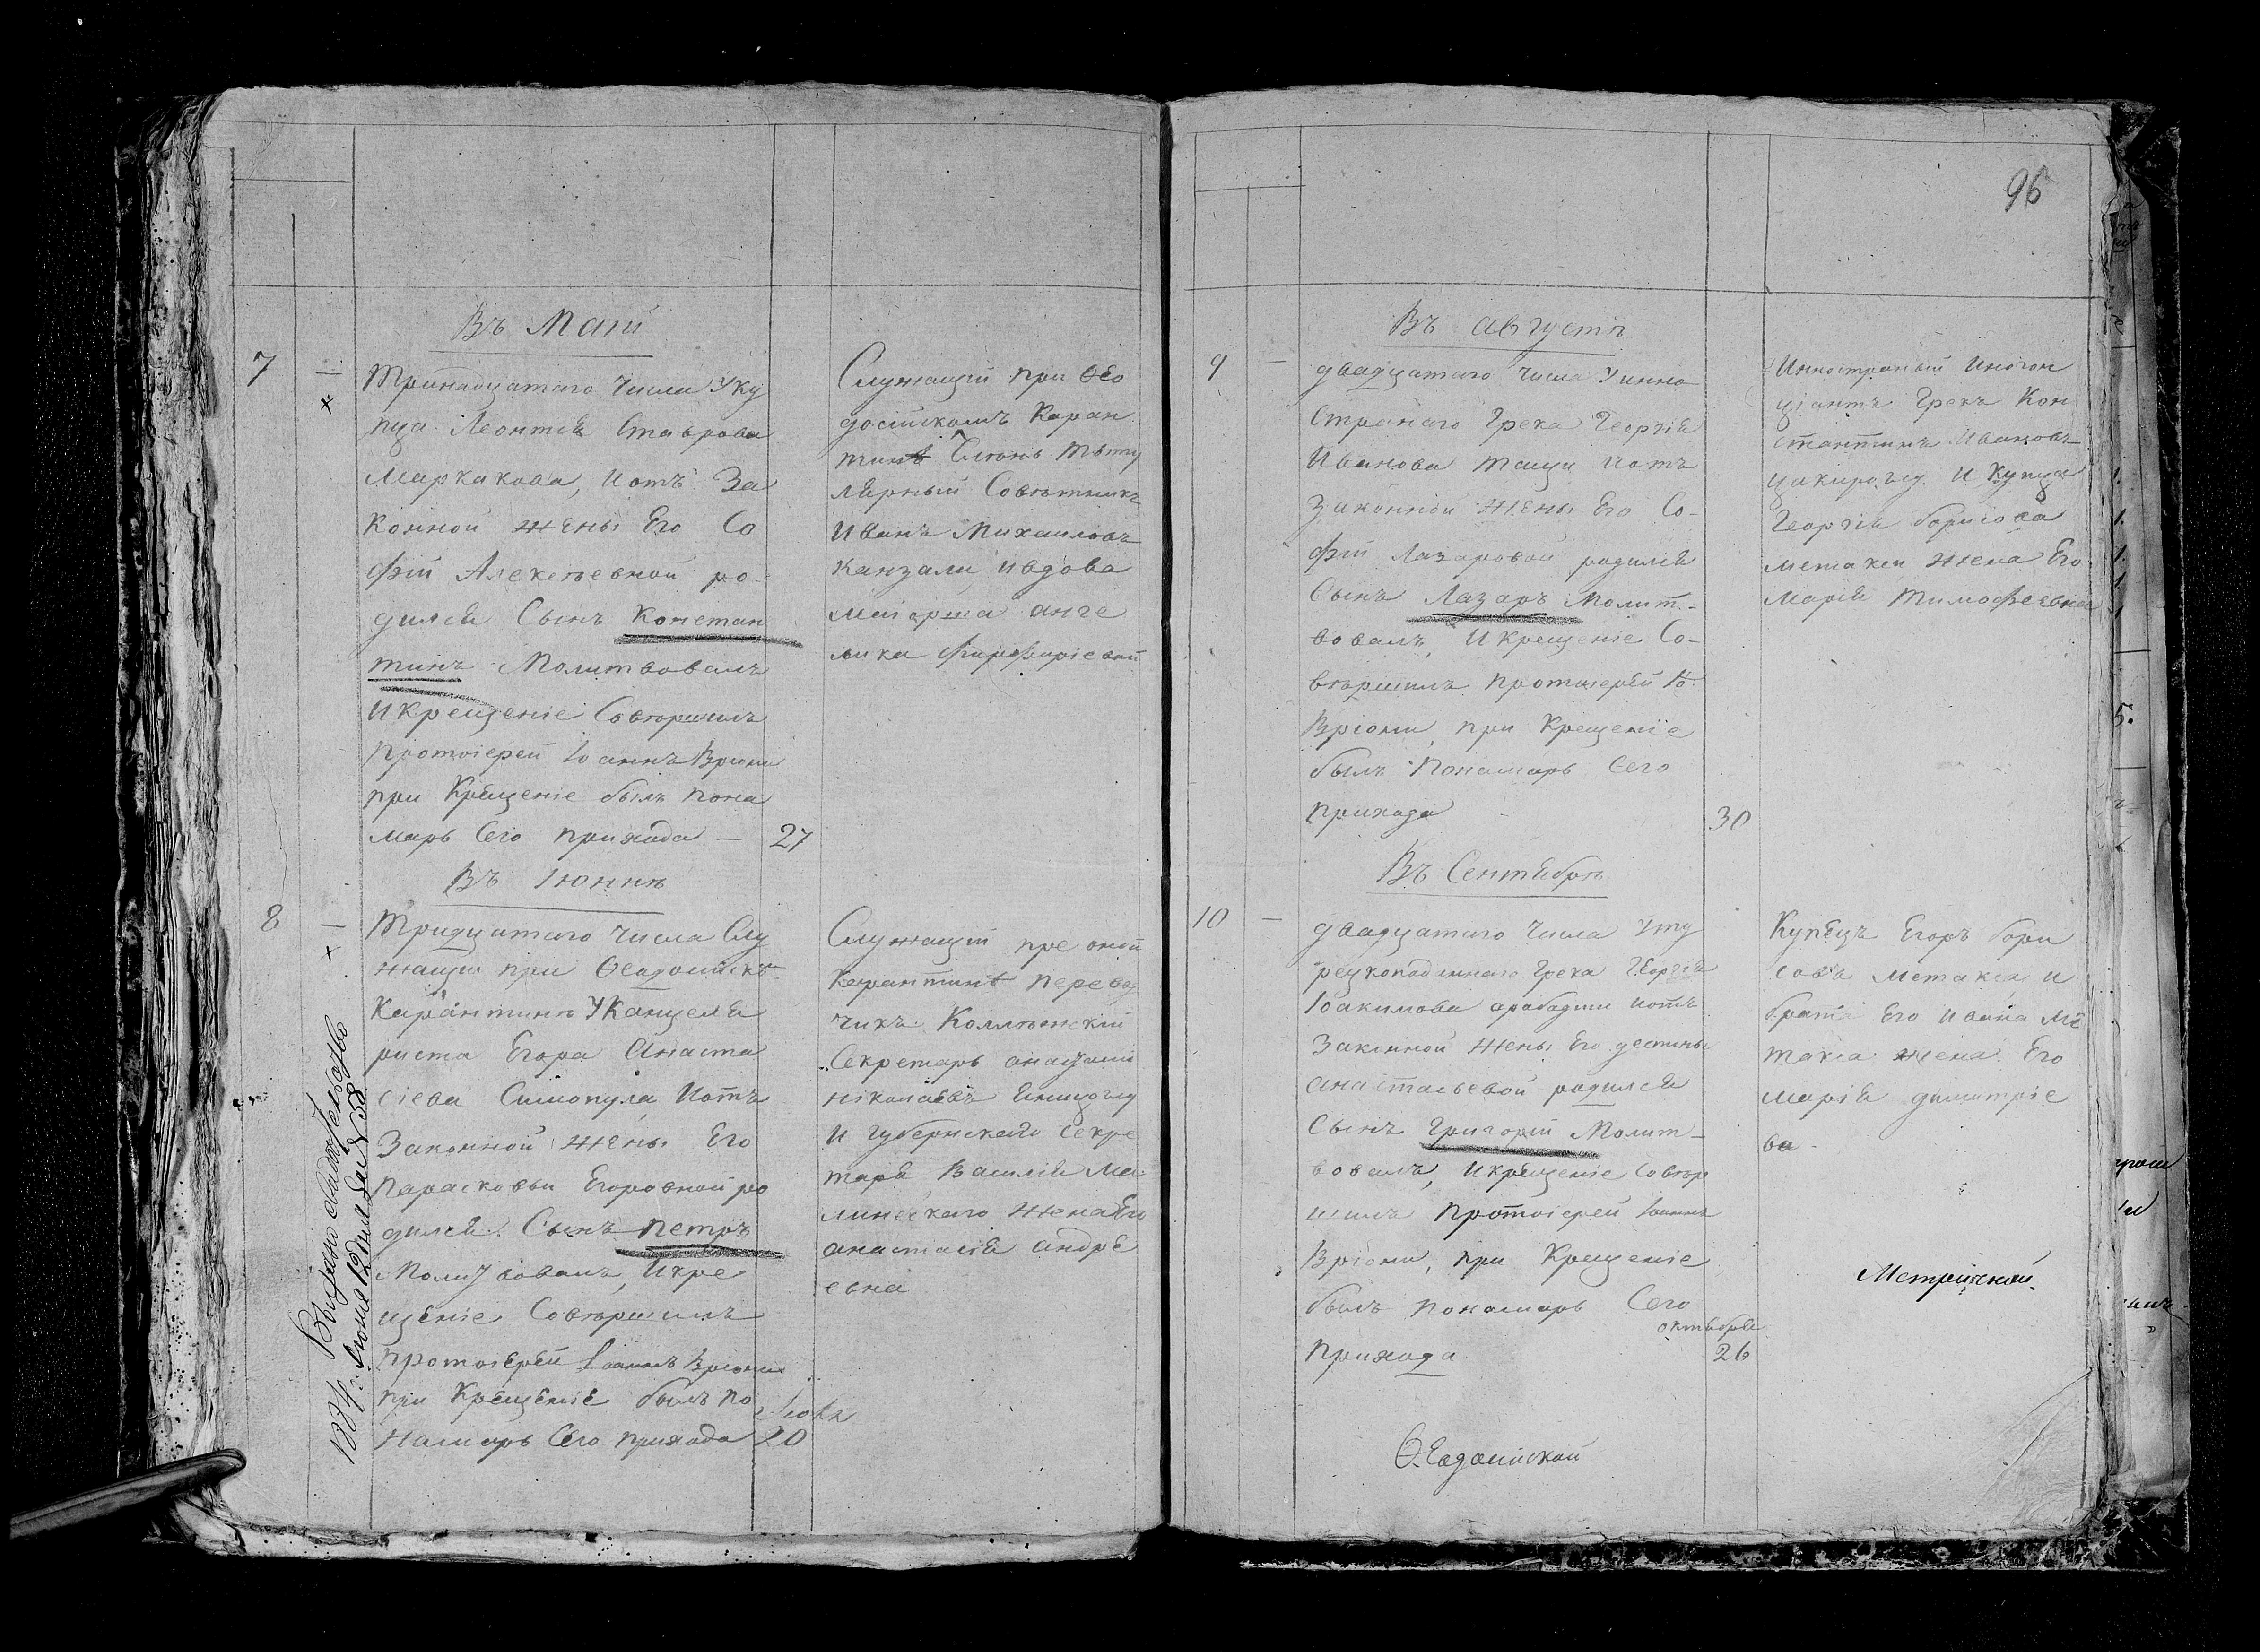 Въ Маіи
7 —
Тринадцатаго числа у ку
пца Леонтія Ставрова
Маркакова, и отъ За
конной жены Его Со
фіи Алексѣевной ро
дился Сынъ Констан
тинъ Молитвовалъ
и крещеніе Совершилъ
протоіерей Іоаннъ Вріони
при Крещеніе былъ пона
марь Сего прихода — 27
Служащій при Ѳео
досійскомъ Каран
тинѣ
лярный Совѣтникъ
Иванъ Михаиловъ
Канзали, и вдова
маіорша анге
лика
Въ Іюннѣ
8 —
Тридцатаго числа Слу
жащи при Ѳеодосійск
Карантинѣ у Канцеля
риста Егора Анаста
сіева Симопула, и отъ
Законной жены Его
парасковьи Егоровной ро
дился Сынъ Петръ
Молитвовалъ, и кре
щеніе Совершилъ
протоіерей Іоаннъ Вріони
при Крещеніе былъ по
намарь Сего прихода 20
Служащій при оной
Карантинѣ перевод
чикъ Коллежскій
Секретарь
Николаевъ
и Губернскаго Секре
таря Василія Ма
линскаго жена Его
анастасія андре
евна
1884 г. Іюня 12 дня за № 58
96
Въ Августѣ
9 —
двадцатаго числа у инно
Страннаго Грека Георгія
Иванова и отъ
Законной жены Его Со-
фіи Лазаровой родился
Сынъ Лазарь Молит-
вовалъ, и крещеніе Со-
вершилъ протоіерей Іо.
Вріони, при Крещеніе
былъ Понамарь Сего
прихода 30
Инностраный
Грекъ Кон
стантинъ Ивановъ
и купца
Георгія борисова
метакси жена Его
Марія Тимофеевна
Въ Сентябрѣ
10 —
двадцатаго числа у ту
рецкоподданнаго Грека Георгія
Іоакимова арабаджи и отъ
Законной жены Его
анастасьевой родился
Сынъ Григорій Молит-
вовалъ, и крещеніе Совер
шилъ протоіерей Іоаннъ
Вріони, при Крещеніе
былъ понамарь Сего
октября
прихода 26
Купецъ Егоръ бори
совъ метакса и
брата Его Ивана Ме
такса жена Его
марія димитріе
ва.
Метрической
Ѳеодосійской